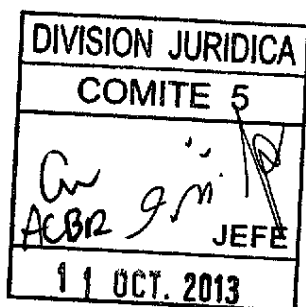 DIVISION JURIDICA
COMITE 5
ACBR
JEFE
11 OCT. 2013